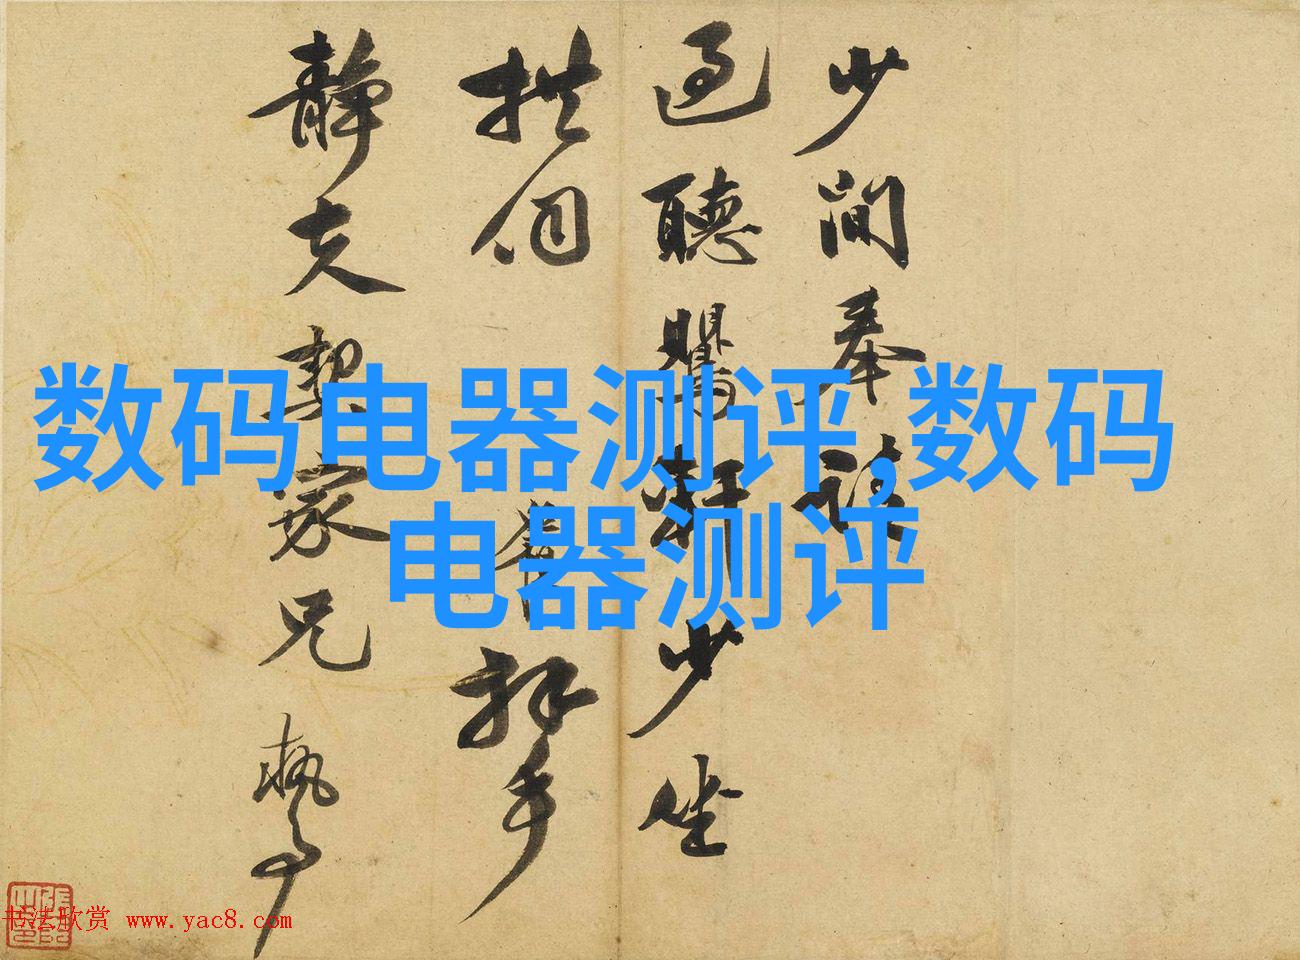 少間奉
過聽鸎軒少坐
拱伺
拜手
靜夫契家兄執事
数码电器测评,数码
电器测评
书法欣赏 www.yac8.com